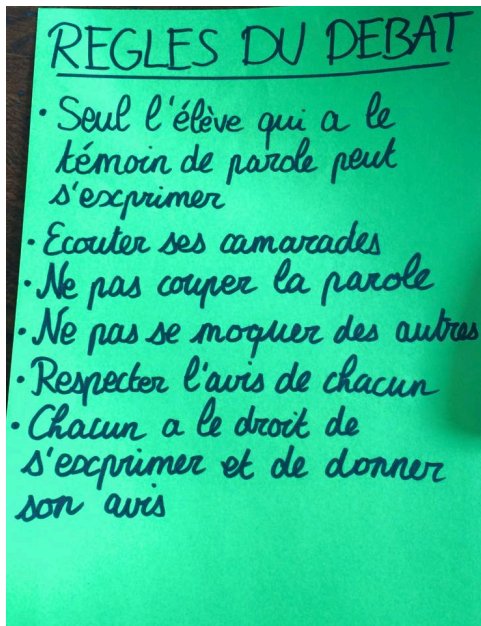 REGLES DU DEBAT
• Seul l'élève qui a le
témoin de parole peut
s'exprimer
• Ecouter ses camarades
• Ne pas couper la parole
• Ne pas se moquer des autres
• Respecter l'avis de chacun
• Chacun a le droit de
s'exprimer et de donner
son avis